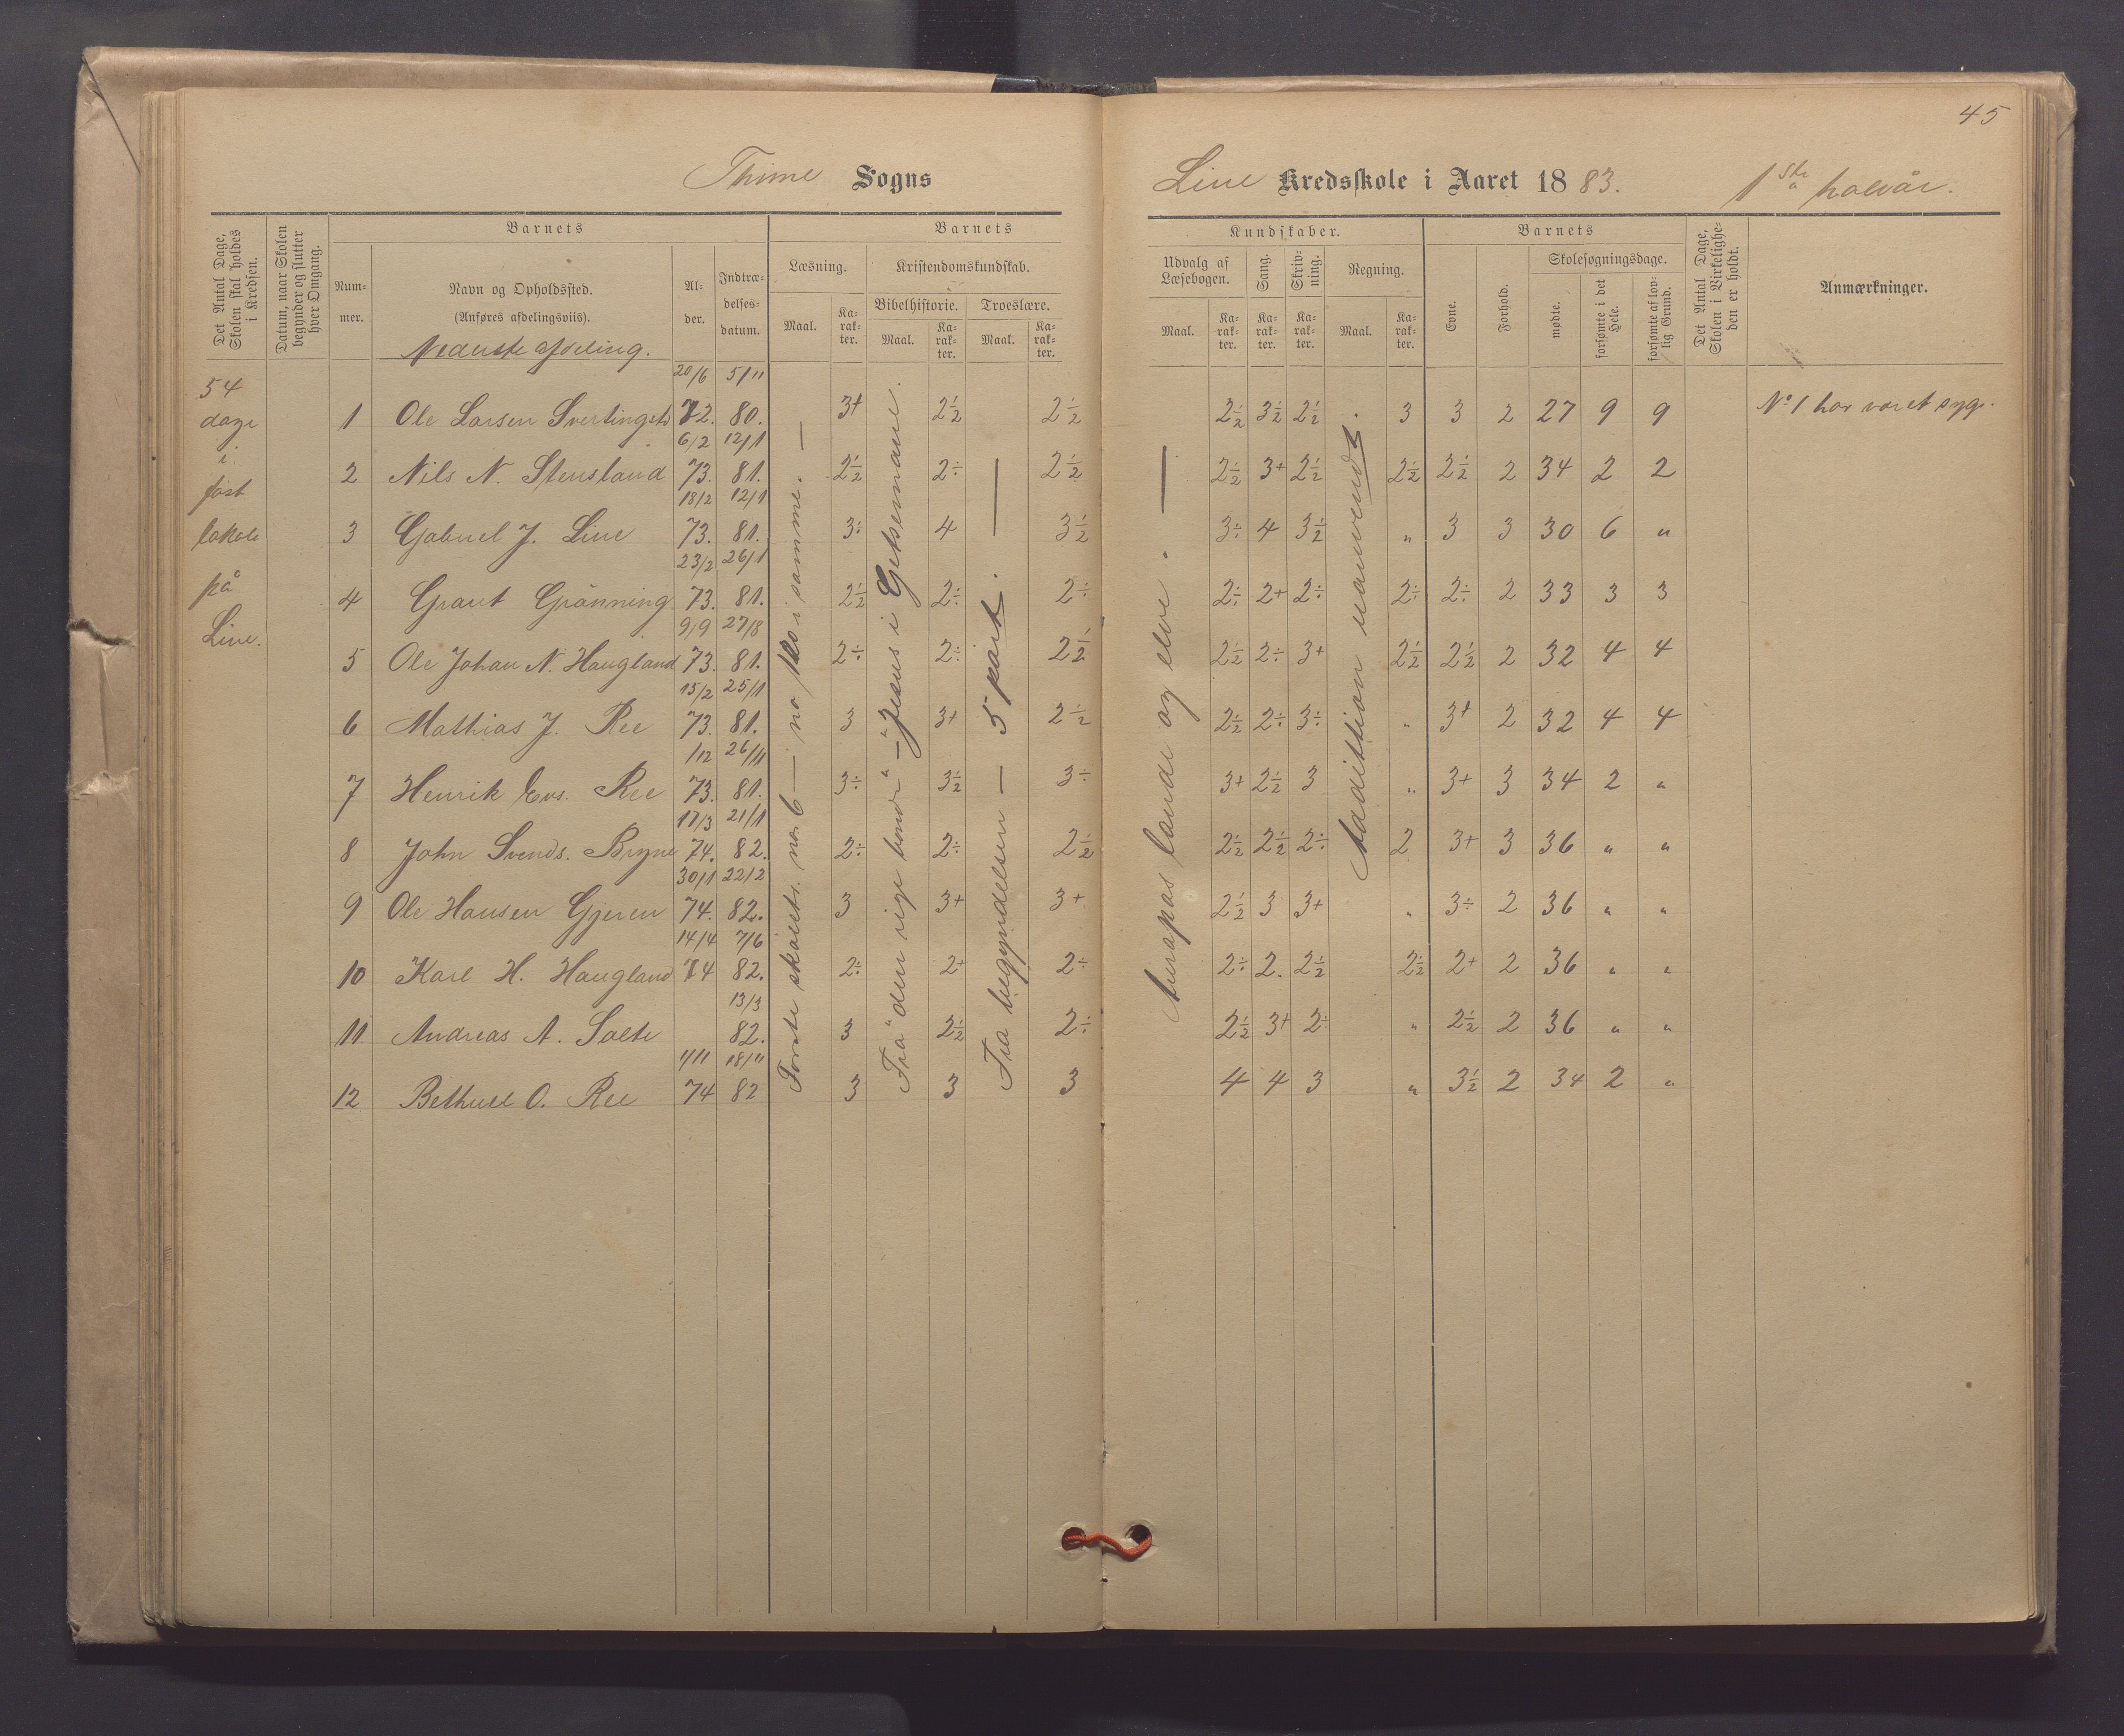 45
Thime Sogns
Line Kredsskole i Aaret 1883. 1ste halvår.
Det Antal Dage, Skolen skal holdes i Kredsen.
Datum, naar Skolen begynder og slutter hver Omgang.
Barnets
Nummer.
Navn og Opholdssted.
(Anføres afdelingsviis).
Nederste afdeling.
Alder.
Indtrædelsesdatum.
Barnets
Læsning.
Maal.
Karakter.
Kristendomskundskab.
Bibelhistorie.
Maal.
Karakter.
Troeslære.
Maal.
Karakter.
Kundskaber.
Udvalg af Læsebogen.
Maal.
Karakter.
Sang.
Karakter.
Skrivning.
Karakter.
Regning.
Maal.
Karakter.
Barnets
Evne.
Forhold.
Skolesøgningsdage.
mødte.
forsømte i det Hele.
forsømte af lovlig Grund.
Det Antal Dage, Skolen i Virkeligheden er holdt.
Anmærkninger.
54
dage
i
fast
lokale
på
Line.
1 Ole Larsen 20/6 72. 5/11 80. 3+ 2½ 2½ 2½ 3½ 2½ 3 3 2 27 9 9 No 1 har været syg.
2 Nils N. Stensland 6/2 73. 12/1 81. 2½ 2÷ 2½ 2½ 3+ 2½ 2½ 2½ 2 34 2 2
3 Gabriel J. Line 18/2 73. 12/1 81. 3÷ 4 3½ 3÷ 4 3½ " 3 3 30 6 "
4 Graut Grönning 23/2 73. 26/1 81. 2½ 2÷ 2÷ 2÷ 2+ 2÷ 2÷ 2÷ 2 33 3 3
5 Ole Johan N. Haugland 9/9 73. 27/8 81. 2÷ 2÷ 2½ 2½ 2÷ 3+ 2½ 2½ 2 32 4 4
6 Mathias J. Ree 15/2 73. 25/1 81. 3 3+ 2½ 2½ 2÷ 3÷ " 3+ 2 32 4 4
7 Henrik Evs. Ree 1/12 73. 26/11 81. 3÷ 3½ 3÷ 3+ 2½ 3 " 3+ 3 34 2 "
8 John Svends. Bryne 17/3 74. 21/1 82. 2÷ 2÷ 2½ 2½ 2½ 2÷ 2 3+ 3 36 " "
9 Ole Hansen Gjeren 30/1 74. 22/2 82. 3 3+ 3+ 2½ 3 3+ " 3÷ 2 36 " "
10 Karl H. Haugland 14/4 74 7/6 82. 2÷ 2+ 2÷ 2÷ 2. 2½ 2½ 2+ 2 36 " "
11 Andreas A. Salte 13/3 82. 3 2½ 2÷ 2½ 3+ 2÷ " 2½ 2 36 " "
12 Bethuel O. Ree 1/11 74 18/11 82 3 3 3 4 4 3 " 3½ 2 34 2 "
Første skolets. no. 6 — no. 10 i samme. —
Fra "den rige bonde" — Jesus i Getsemane.
Fra begyndelsen — 5 part. —
Europas lande og elve. —
Addittion uanvendt.